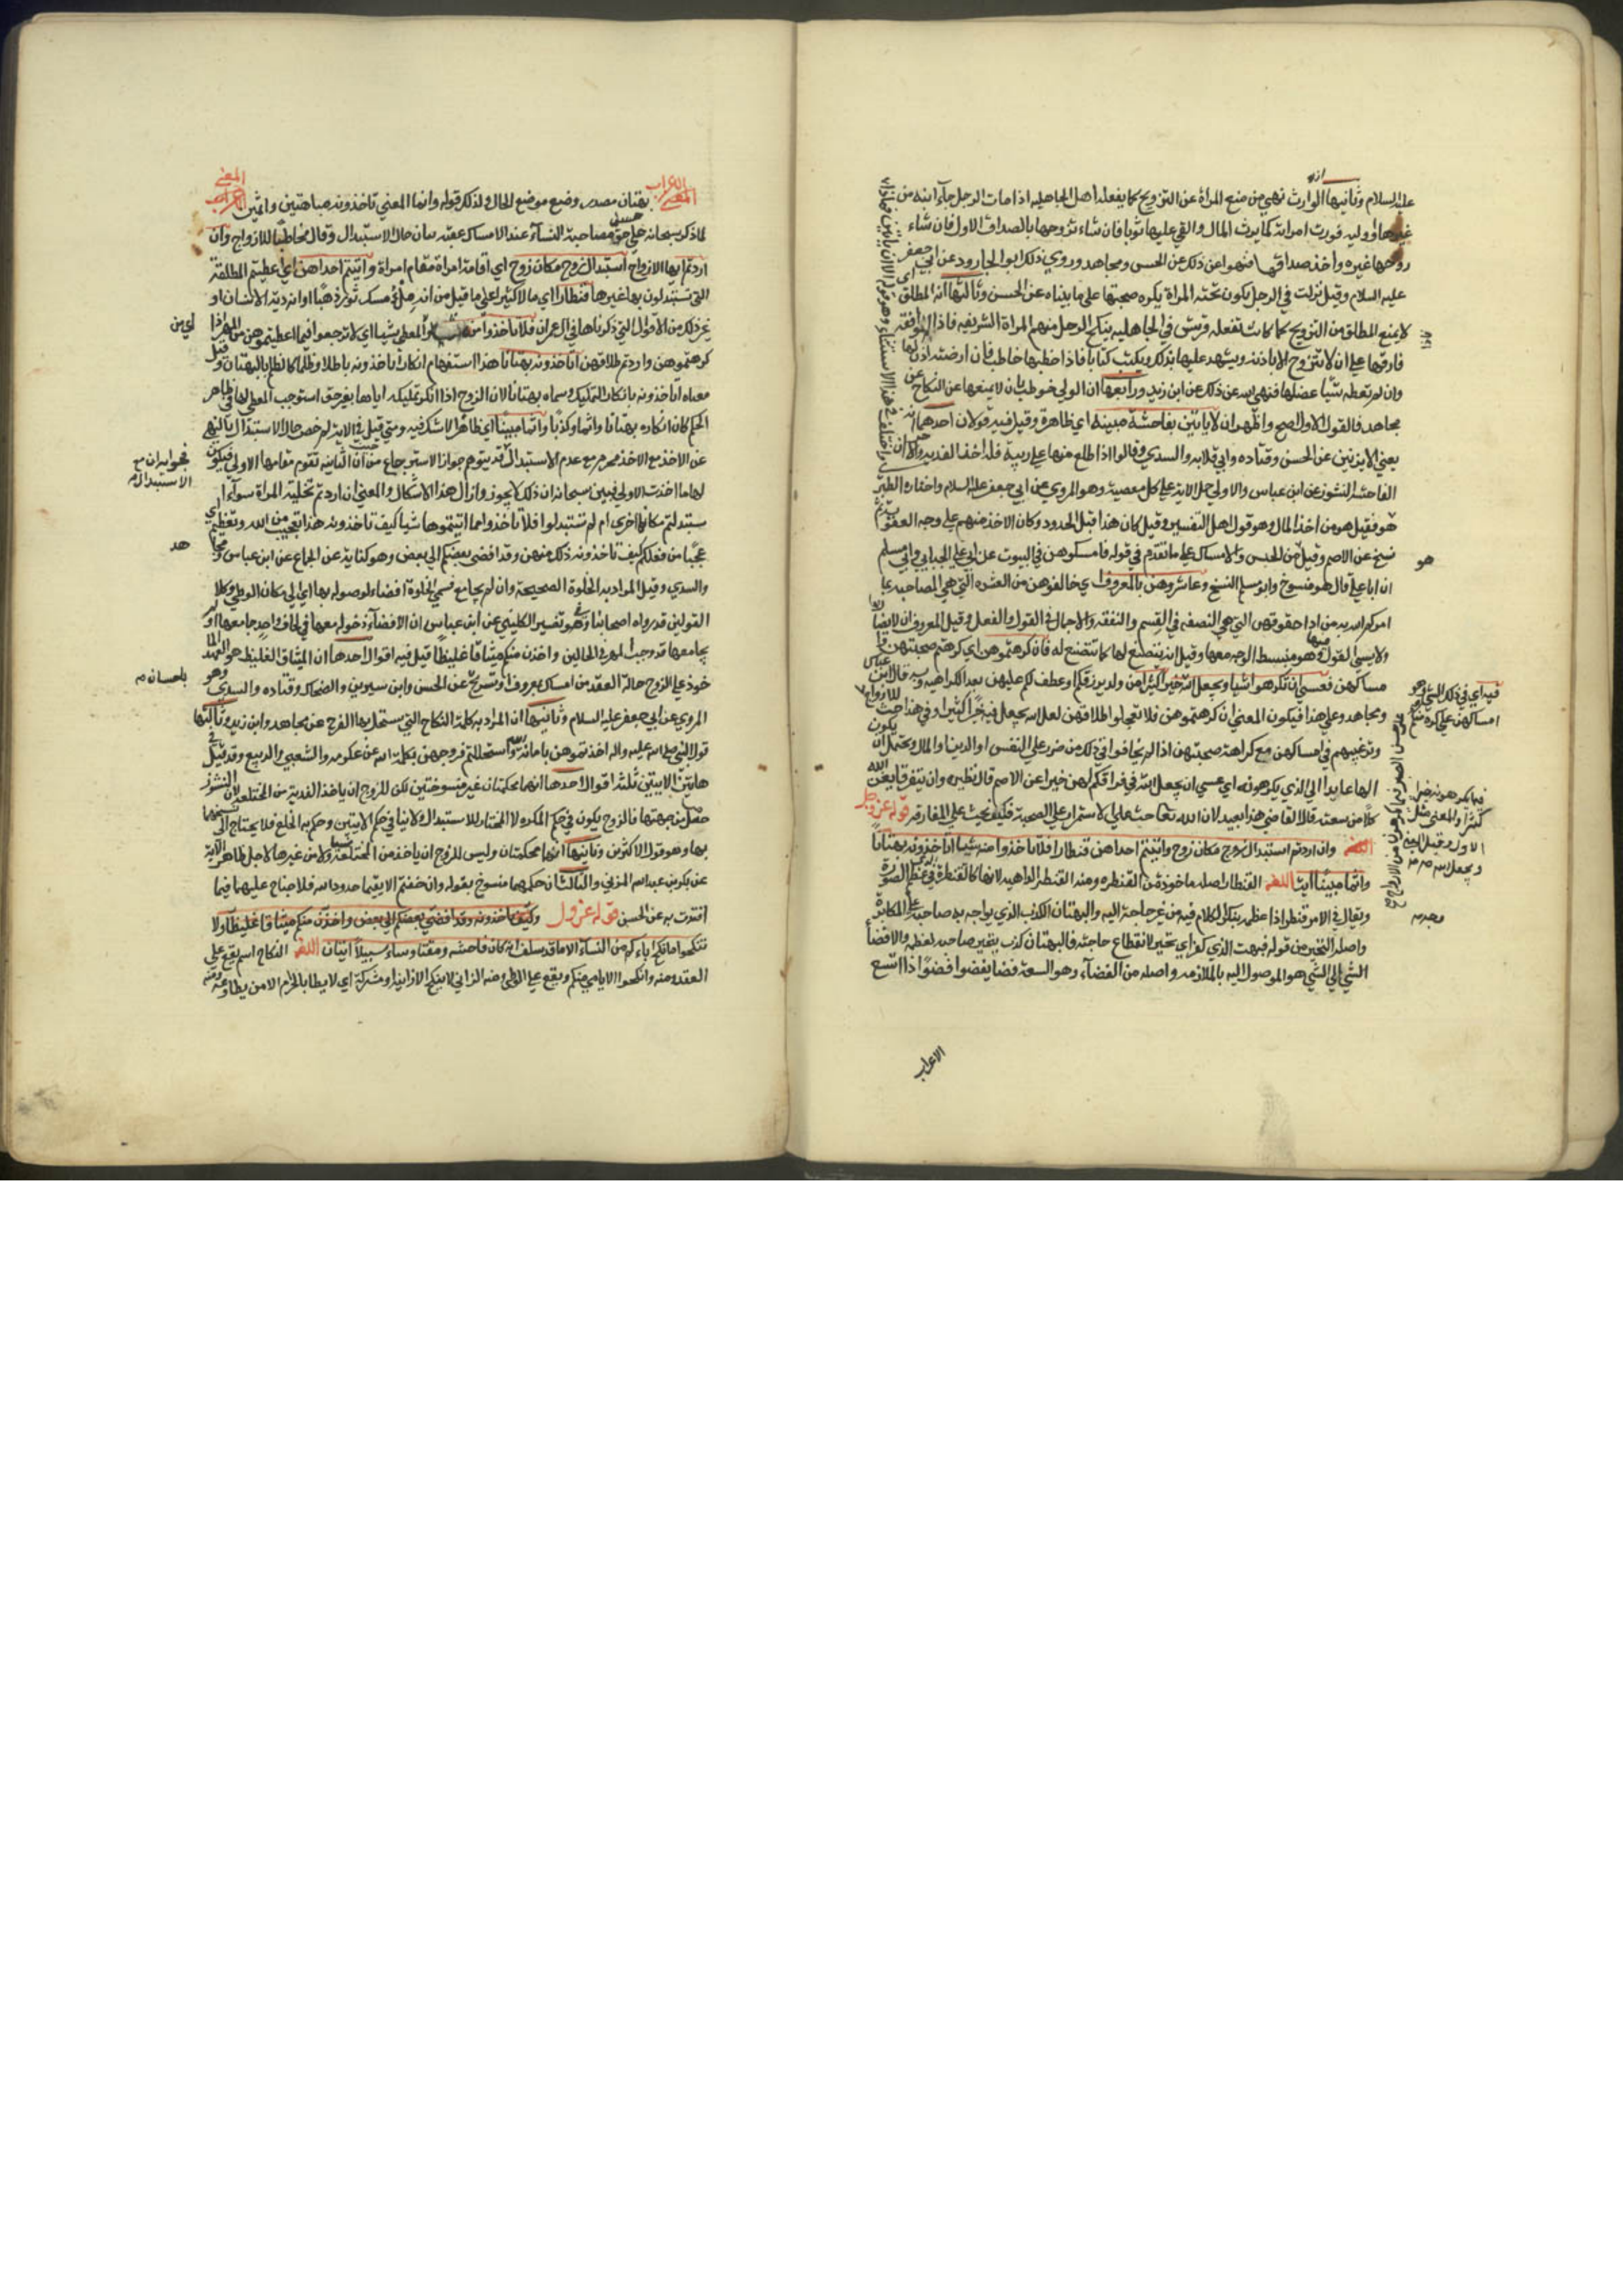 عليه السلام وثانيها ان الوارث نهي من منع المرأة عن التزويج كما يفعله اهل الجاهلية اذا مات الرجل جآء ابنه من
غيرها او وليه فورث امراته كما يرث المال والقي عليها ثوبا فان شاء تزوجها بالصداق الاول فان شاء
زوجها غيره واخذ صداقها فنهوا عن ذلك عن الحسن ومجاهد وروي ذلك ابو الجارود عن ابي جعفر
عليه السلام وقيل نزلت في الرجل يكون تحته المرأة يكره صحبتها على ما بيناه عن الحسن وثالثها انه المطلق اي
لا يمنع المطلق من التزويج كما كانت تفعله قريش في الجاهلية ينكح الرجل منهم المراة الشريفه فاذا لم توافقه
فارقها على ان لا تتزوج الا باذنه ويشهد عليها بذلك ويكتب كتابا فاذا خطبها خاطب فان ارضته اذن لها
وان لم تعطه شيا عضلها فنهي الله عن ذلك عن ابن زيد ورابعها ان الولي خوطب بان لا يمنعها عن النكاح عن
مجاهد فالقول الاول اصح والظهر ان لا ياتين بفاحشة مبينة اي ظاهرة وقيل فيه قولان احدهما انه
يعني الا ان يزنين عن الحسن وقتاده وابي قلابه والسدي وقالوا اذا اطلع منها على ريبة فله اخذ الفديه والاخر ان
الفاحشة النشوز عن ابن عباس والاولي حمل الاية على كل معصية وهو المروي عن ابي جعفر عليه السلام واختاره الطبري
هو فقيل هو من اخذ المال وهو قول اهل التفسير وقيل كان هذا قبل الحدود وكان الاخذ منهم على وجه العقوبة ثم
نسخ عن الاصم وقيل من الحبس والامساك على ما تقدم في قوله فامسكوهن في البيوت عن ابي علي الجبايي وابي مسلم
ان ابا علي قال هو منسوخ وابو مسلم النسخ وعاشروهن بالمعروف اي خالطوهن من العشره التي هي المصاحبه بما
امركم الله به من ادا حقوقهن التي هي النصفة في القسم والنفقة والاجمال في القول والفعل وقيل المعروف ان لا يضربها
ولا يسئ القول فيها وهو منبسط الوجه معها وقيل ان يتصنع لها كما تتصنع له فان كرهتموهن اي كرهتم صحبتهن
امساكهن فعسى ان تكرهوا شيا ويجعل الله فيه خيرا كثيرا من ولد يرزقكم او عطف لكم عليهن بعد الكراهيه وبه قال ابن عباس
ومجاهد وعلى هذا فيكون المعنى ان كرهتموهن فلا تعجلوا طلاقهن لعل الله يجعل فيهن خيرا كثيرا وفي هذا حث للازواج
وترغيبهم في امساكهن مع كراهة صحبتهن اذا لم يخافوا في ذلك من ضرر على النفس او الدين او المال ويحتمل ان يكون
الهاء عايدا الى الذي يكرهونه اي عسى ان يجعل الله في فراقكم لهن خيرا عن الاصم قال نظيره وان يتفرقا يغن الله
كلا من سعته قال القاضي هذا بعيد لان الله تعالى حث على الاستمرار على الصحبة فكيف يحث على المفارقه قوله عز وجل
وان اردتم استبدال زوج مكان زوج واتيتم احداهن قنطارا فلا تاخذوا منه شيئا اتاخذونه بهتانا
واثما مبينا ايت اللغه القنطار اصله ماخوذة من القنطره ومنه القنطر الداهيه لانها كالقنطرة في عظم الصورة
ويقال في الامر قنطر اذا عظمه بتكثير الكلام فيه من غير حاجة اليه والبهتان الكذب الذي يواجه به صاحبه على المكابرة
واصله التحير من قوله فبهت الذي كفر اي تحير لانقطاع حاجته فالبهتان كذب يحير صاحبه لعظمه والافضأ
الشي الى الشي هو الموصول اليه بالملازمه واصله من الفضآء وهو السعة فضا يفضوا فضوا اذا اتسع
الاعراب
الاعراب بهتان مصدر وضع موضع الحال ولذلك قوله واثما المعني تاخذونه مباهتين واثمين المعني
لما ذكر سبحانه حسن مصاحبة النسآء عند الامساك عقبه ببيان حال الاستبدال وقال مخاطبا للازواج وان
اردتم ايها الازواج استبدال زوج مكان زوج اي اقامة امراة مقام امراة واتيتم احداهن اي اعطيتم المطلقة
التي تستبدلون بها غيرها قنطارا اي مالا كثيرا على ما قيل من انه ملؤ مسك ثور ذهبا او انه دية الانسان او
غير ذلك من الاقوال التي ذكرناها في ال عمران فلا تاخذوا منه اي من المعطي شيا اي لا ترجعوا فيما اعطيتموهن من المهر اذا
كرهتموهن واردتم طلاقهن اتاخذونه بهتانا هذا استفهام انكار اتاخذونه باطلا وظلما كالظلم بالبهتان وقيل
معناه اتاخذونه بانكار التمليك وسماه بهتانا لان الزوج اذا انكر تمليكه اياها بغير حق استوجب المعطي لها في ظاهر
الحكم كان انكاره بهتانا واثما وكذبا واثما مبينا اي ظاهرا لا شك فيه ومتى قيل في الاية لم خص حال الاستبدال بالنهي
عن الاخذ مع الاخذ محرم مع عدم الاستبدال قد يتوهم جواز الاسترجاع من حيث ان الثانية تقوم مقامها الاولى فيكون
لها ما اخذت الاولى فبين سبحانه ان ذلك لا يجوز وازال هذا الاشكال والمعنى ان اردتم تخلية المراة سوآء
استبدلتم مكانها اخرى ام لم تستبدلوا فلا تاخذوا مما اتيتموها شيا كيف تاخذونه هذا تعجيب من الله وتعظيم اي
عجبا من فعلكم كيف تاخذونه ذلك منهن وقد افضى بعضكم الى بعض وهو كناية عن الجماع عن ابن عباس ومجاهد
والسدي وقيل المراد به الخلوة الصحيحة وان لم يجامع فسمي الخلوة افضاء لوصوله بها الى مكان الوطي وكلا
القولين قد رواه اصحابنا وفي تفسير الكلبي عن ابن عباس ان الافضآء دخوله معها في لحاف واحد جامعها او لم
يجامعها قد وجب المهر في الحالين واخذن منكم ميثاقا غليظا قيل فيه اقوال احدها ان الميثاق الغليظ هو العهد الما
خوذ على الزوج حالة العقد من امساك بمعروف او تسريح باحسان عن الحسن وابن سيرين والضحاك وقتاده والسدي وهو
المروي عن ابي جعفر عليه السلام وثانيها ان المراد به كلمة النكاح التي يستحل بها الفرج عن مجاهد وابن زيد وثالثها
قول النبي صلى الله عليه واله اخذتموهن بامانة الله واستحللتم فروجهن بكلمة الله عن عكرمه والشعبي والربيع وقد قيل في
هاتين الايتين ثلثة اقوال احدها انهما محكمتان غير منسوختين لكن للزوج ان ياخذ الفدية من المختلعه لان النشوز
حصل من جهتها فالزوج يكون في حكم المكره لا المختار للاستبدال ولا ينافي حكم الايتين وحكم اية الخلع فلا يحتاج الى نسخهما
بها وهو قول الاكثرين وثانيها انهما محكمتان وليس للزوج ان ياخذ من المختلعة شيا ولا من غيرها لاجل ظاهر الاية
عن بكر بن عبد الله المزني والثالث ان حكمهما منسوخ بقوله وان خفتم الا يقيما حدود الله فلا جناح عليهما فيما
افتدت به عن الحسن قوله عز وجل وكيف تاخذونه وقد افضى بعضكم الى بعض واخذن منكم ميثاقا غليظا ولا
تنكحوا ما نكح اباءكم من النسآء الا ما قد سلف انه كان فاحشه ومقتا وساء سبيلا ايتان اللغه النكاح اسم يقع على
العقد ومنه وانكحوا الايامى منكم ويقع على الوطي ومنه الزاني لا ينكح الا زانية او مشركة اي لا يطا بالحرام الا من يطاوعه